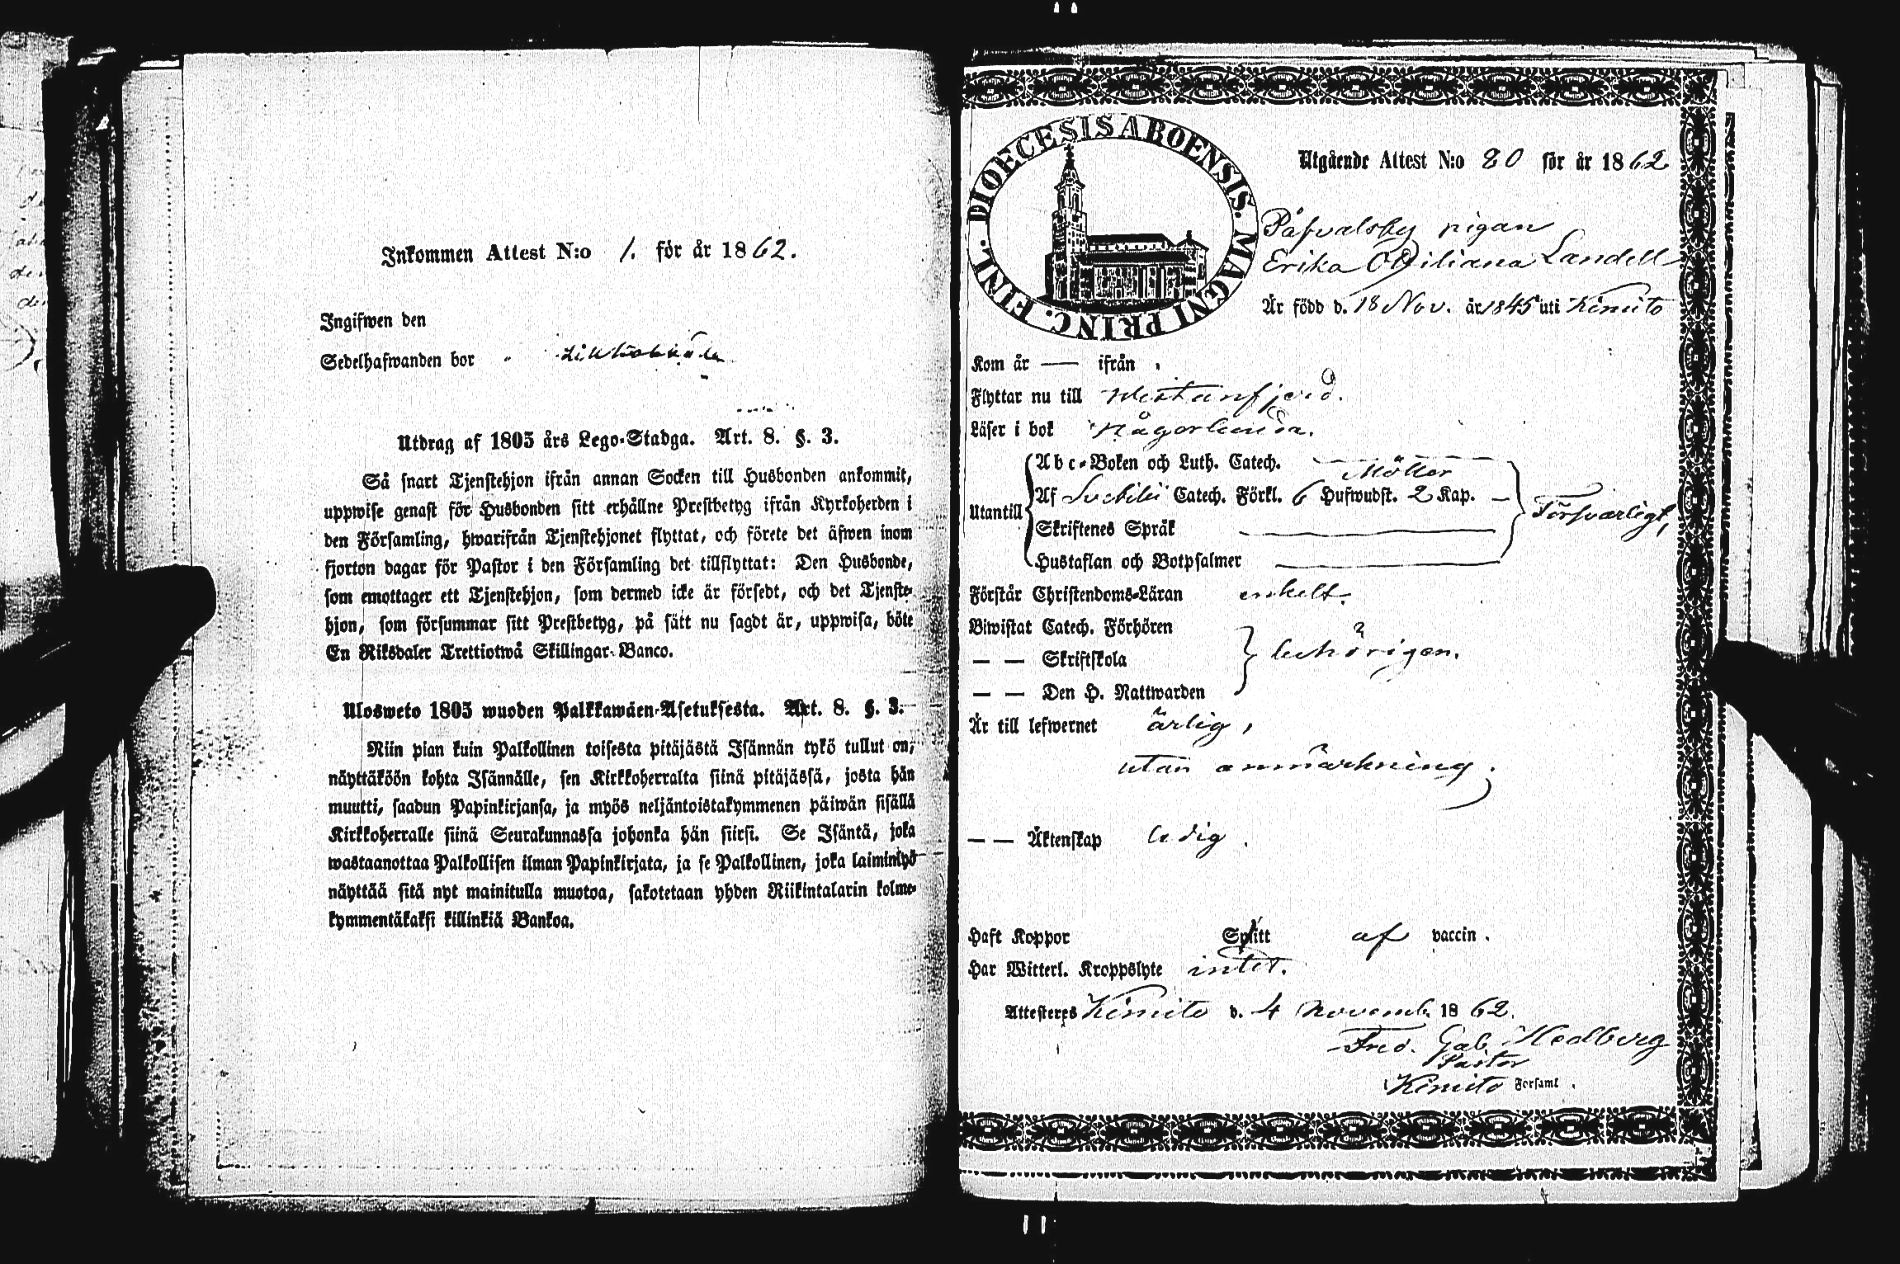 Inkommen Attest N:o 1. för år 1862.
Ingifwen den
Sedelhafwanden bor
Utdrag af 1805 års Lego-Stadga. Art. 8. §. 3.
Så snart Tjenstehjon ifrån annan Socken till Husbonden ankommit,
uppwise genast för Husbonden sitt erhållne Prestbetyg ifrån Kyrkoherden i
den Församling, hwarifrån Tjenstehjonet flyttat, och förete det äfwen inom
fjorton dagar för Pastor i den Församling det tillflyttat: Den Husbonde,
som emottager ett Tjenstehjon, som dermed icke är försedt, och det Tjenste-
hjon, som försummar sitt Prestbetyg, på sätt nu sagdt är, uppwisa, böte
En Riksdaler Trettiotwå Skillingar Banco.
Ulosweto 1805 wuoden Palkkawäen-Asetuksesta. Art. 8. §. 3.
Niin pian kuin Palkollinen toisesta pitäjästä Isännän tykö tullut on,
näyttäköön kohta Isännälle, sen Kirkkoherralta siinä pitäjässä, josta hän
muutti, saadun Papinkirjansa, ja myös neljäntoistakymmenen päiwän sisällä
Kirkkoherralle siinä Seurakunnassa johonka hän siirsi. Se Isäntä, joka
wastaanottaa Palkollisen ilman Papinkirjata, ja se Palkollinen, joka laiminlyö
näyttää sitä nyt mainitulla muotoa, sakotetaan yhden Riikintalarin kolme-
kymmentäkaksi killinkiä Bankoa.
DIOECESIS ABOENSIS. MAGNI PRINC. FINL.
Utgående Attest N:o 80 för år 1862
Påfvalsby pigan
Erika Ottiliana Landell
Är född d. 18 Nov. år 1845 uti Kimito
Kom år — ifrån
Flyttar nu till Westanfjerd.
Läser i bok någorlunda.
Utantill
Abc-Boken och Luth. Catech. —
Möller
Af Svebilii Catech. Förkl. 6 Hufwudst. 2 Kap. —
Skriftenes Språk —
Hustaflan och Botpsalmer —
Försvarligt,
Förstår Christendoms-Läran enkelt.
Biwistat Catech. Förhören
— — Skriftskola
— — Den H. Nattwarden
behörigen.
Är till lefwernet ärlig,
utan anmärkning.
— — Äktenskap ledig.
Haft Koppor Splitt af vaccin.
Har Witterl. Kroppslyte intet.
Attesteras Kimito d. 4 Novemb. 1862.
Fred. Gab. Hedberg
Pastor
i Kimito Forsaml.